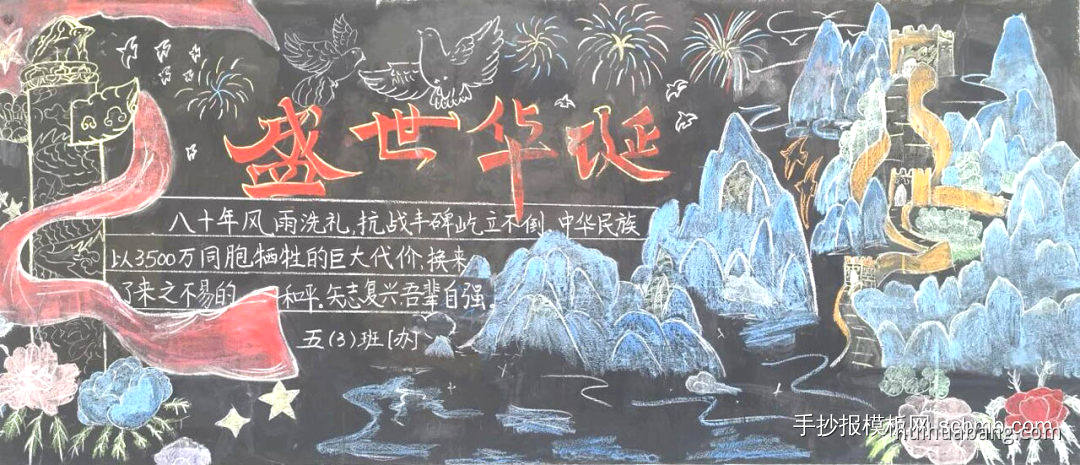 盛世华诞
八十年风雨洗礼,抗战丰碑屹立不倒,中华民族
以3500万同胞牺牲的巨大代价,换来
了来之不易的 和平,矢志复兴吾辈自强。
五(3)班[办]
手抄报模板网 schmb.com
huihuabang.com